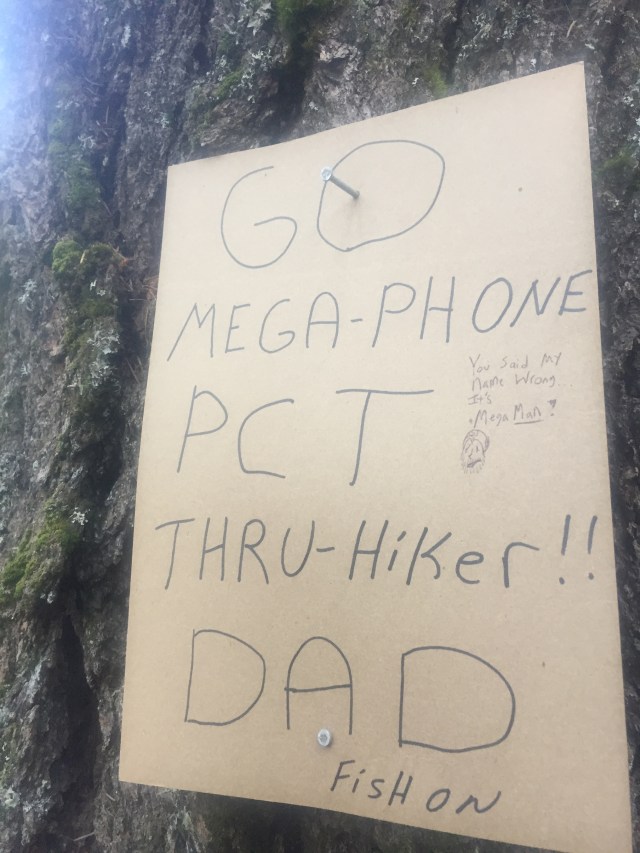 GO
MEGA-PHONE
You Said My
Name Wrong
It's
Mega Man!
PCT
THRU-HiKer!!
DAD
FisH ON